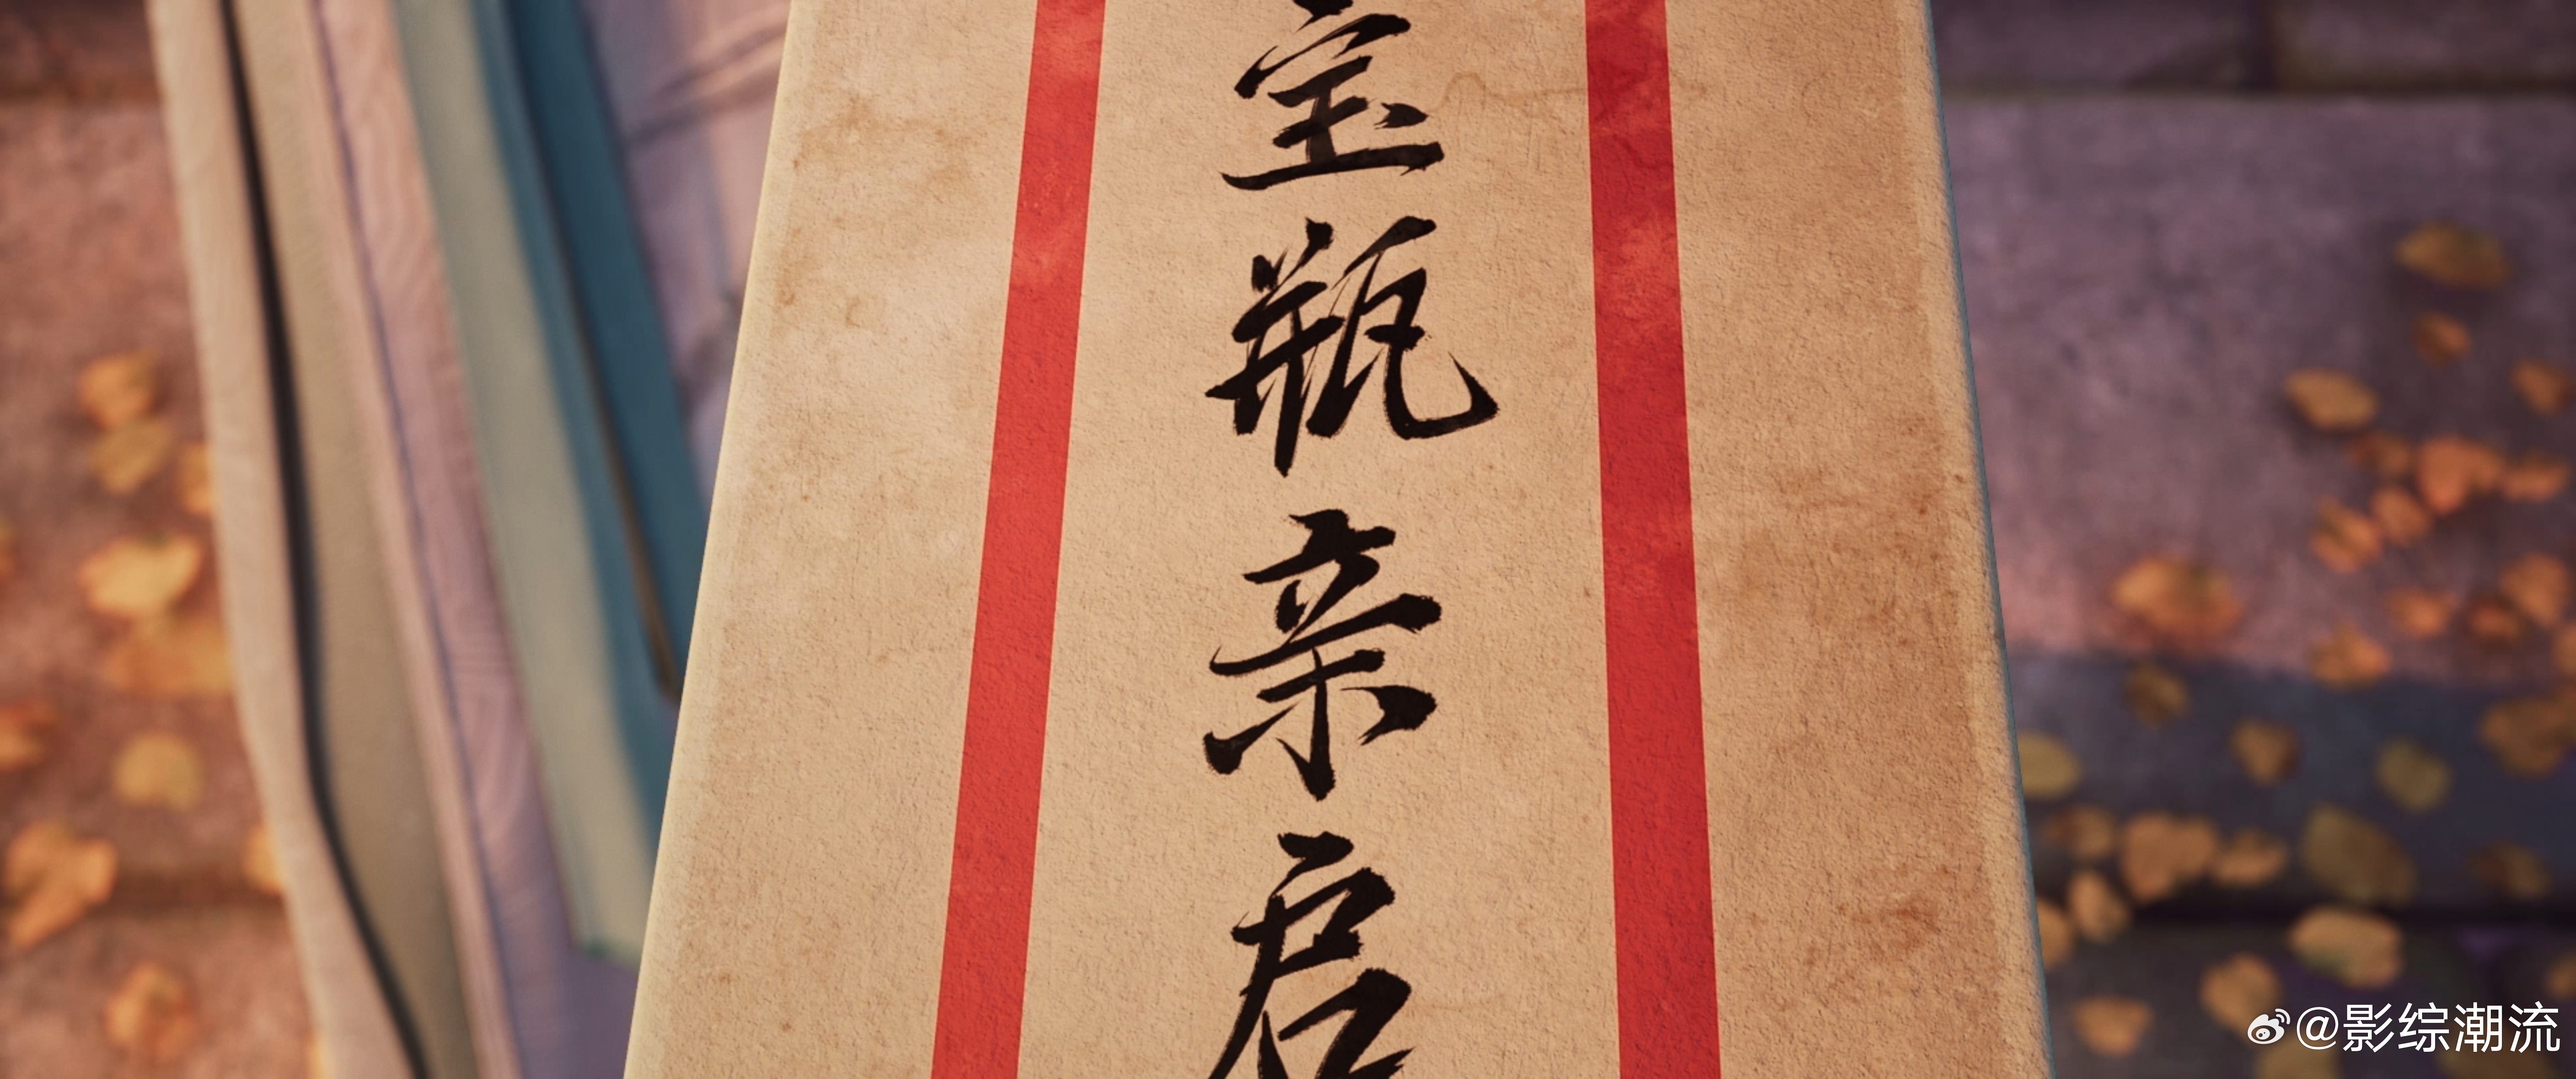 宝瓶亲启
@影综潮流